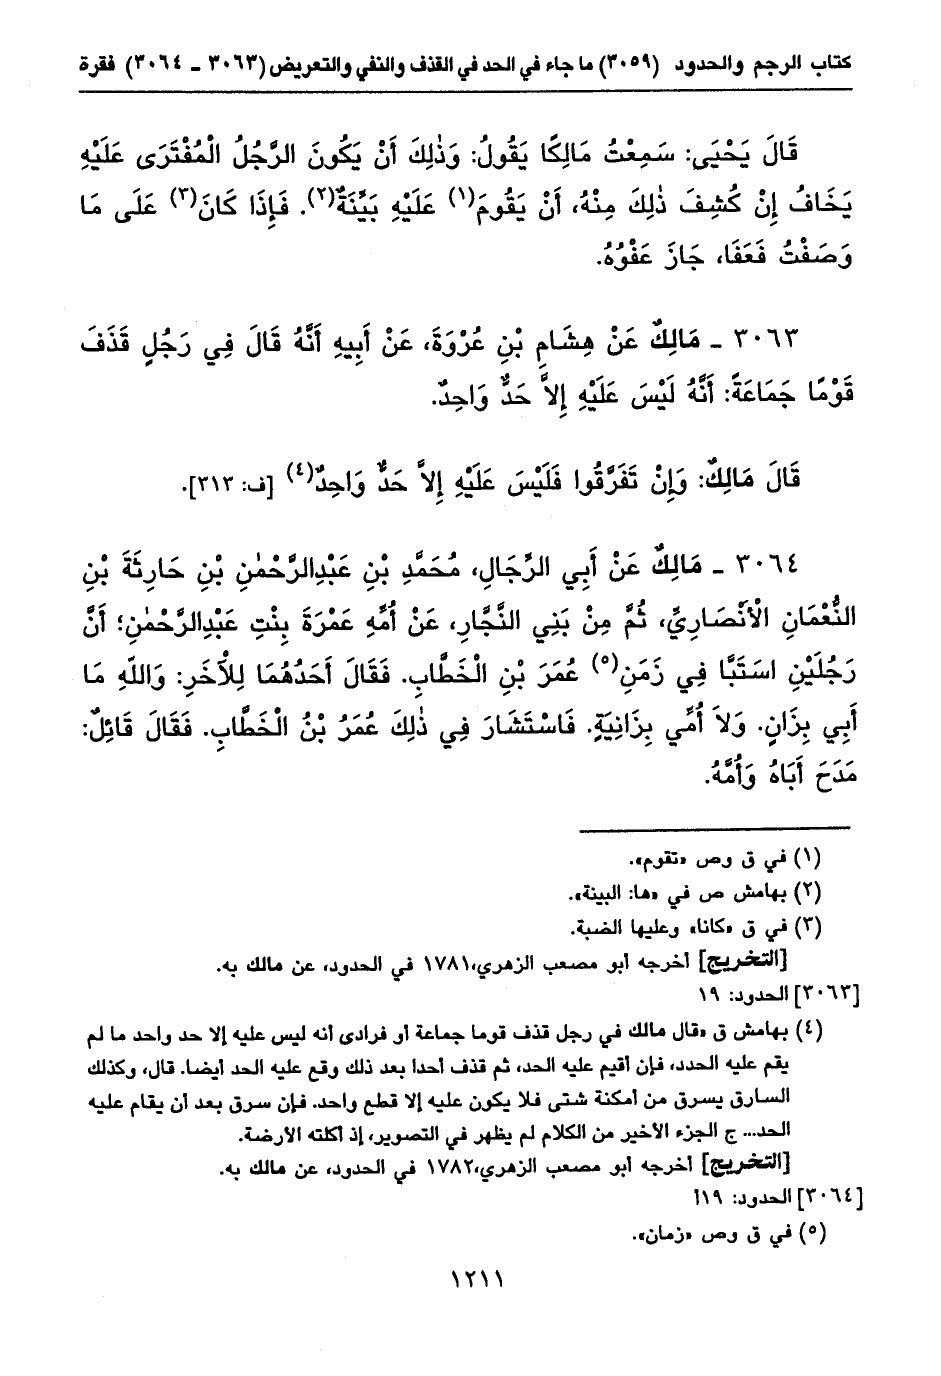 كتاب الرجم والحدود (٣٠٥٩) ما جاء في الحد في القذف والنفي والتعريض (٣٠٦٣ - ٣٠٦٤) فقرة
قَالَ يَحْيَى: سَمِعْتُ مَالِكًا يَقُولُ: وَذٰلِكَ أَنْ يَكُونَ الرَّجُلُ الْمُفْتَرَى عَلَيْهِ
يَخَافُ إِنْ كُشِفَ ذٰلِكَ مِنْهُ، أَنْ يَقُومَ(١) عَلَيْهِ بَيِّنَةٌ(٢). فَإِذَا كَانَ(٣) عَلَى مَا
وَصَفْتُ فَعَفَا، جَازَ عَفْوُهُ.
٣٠٦٣ - مَالِكٌ عَنْ هِشَامِ بْنِ عُرْوَةَ، عَنْ أَبِيهِ أَنَّهُ قَالَ فِي رَجُلٍ قَذَفَ
قَوْمًا جَمَاعَةً: أَنَّهُ لَيْسَ عَلَيْهِ إِلاَّ حَدٌّ وَاحِدٌ.
قَالَ مَالِكٌ: وَإِنْ تَفَرَّقُوا فَلَيْسَ عَلَيْهِ إِلاَّ حَدٌّ وَاحِدٌ(٤) [ف: ٣١٣].
٣٠٦٤ - مَالِكٌ عَنْ أَبِي الرِّجَالِ، مُحَمَّدِ بْنِ عَبْدِالرَّحْمٰنِ بْنِ حَارِثَةَ بْنِ
النُّعْمَانِ الْأَنْصَارِيِّ، ثُمَّ مِنْ بَنِي النَّجَّارِ، عَنْ أُمِّهِ عَمْرَةَ بِنْتِ عَبْدِالرَّحْمٰنِ؛ أَنَّ
رَجُلَيْنِ اسْتَبَّا فِي زَمَنِ(٥) عُمَرَ بْنِ الْخَطَّابِ. فَقَالَ أَحَدُهُمَا لِلْآخَرِ: وَاللّٰهِ مَا
أَبِي بِزَانٍ. وَلاَ أُمِّي بِزَانِيَةٍ. فَاسْتَشَارَ فِي ذٰلِكَ عُمَرُ بْنُ الْخَطَّابِ. فَقَالَ قَائِلٌ:
مَدَحَ أَبَاهُ وَأُمَّهُ.
(١) في ق وص «تقوم».
(٢) بهامش ص في «ها: البينة».
(٣) في ق «كانا» وعليها الضبة.
[التخريج] أخرجه أبو مصعب الزهري، ١٧٨١ في الحدود، عن مالك به.
[٣٠٦٣] الحدود: ١٩
(٤) بهامش ق «قال مالك في رجل قذف قوما جماعة أو فرادى أنه ليس عليه إلا حد واحد ما لم
يقم عليه الحدد، فإن أقيم عليه الحد، ثم قذف أحدا بعد ذلك وقع عليه الحد أيضا. قال، وكذلك
السارق يسرق من أمكنة شتى فلا يكون عليه إلا قطع واحد. فإن سرق بعد أن يقام عليه
الحد... ج الجزء الأخير من الكلام لم يظهر في التصوير، إذ أكلته الأرضة.
[التخريج] أخرجه أبو مصعب الزهري، ١٧٨٢ في الحدود، عن مالك به.
[٣٠٦٤] الحدود: ١٩أ
(٥) في ق وص «زمان».
١٢١١